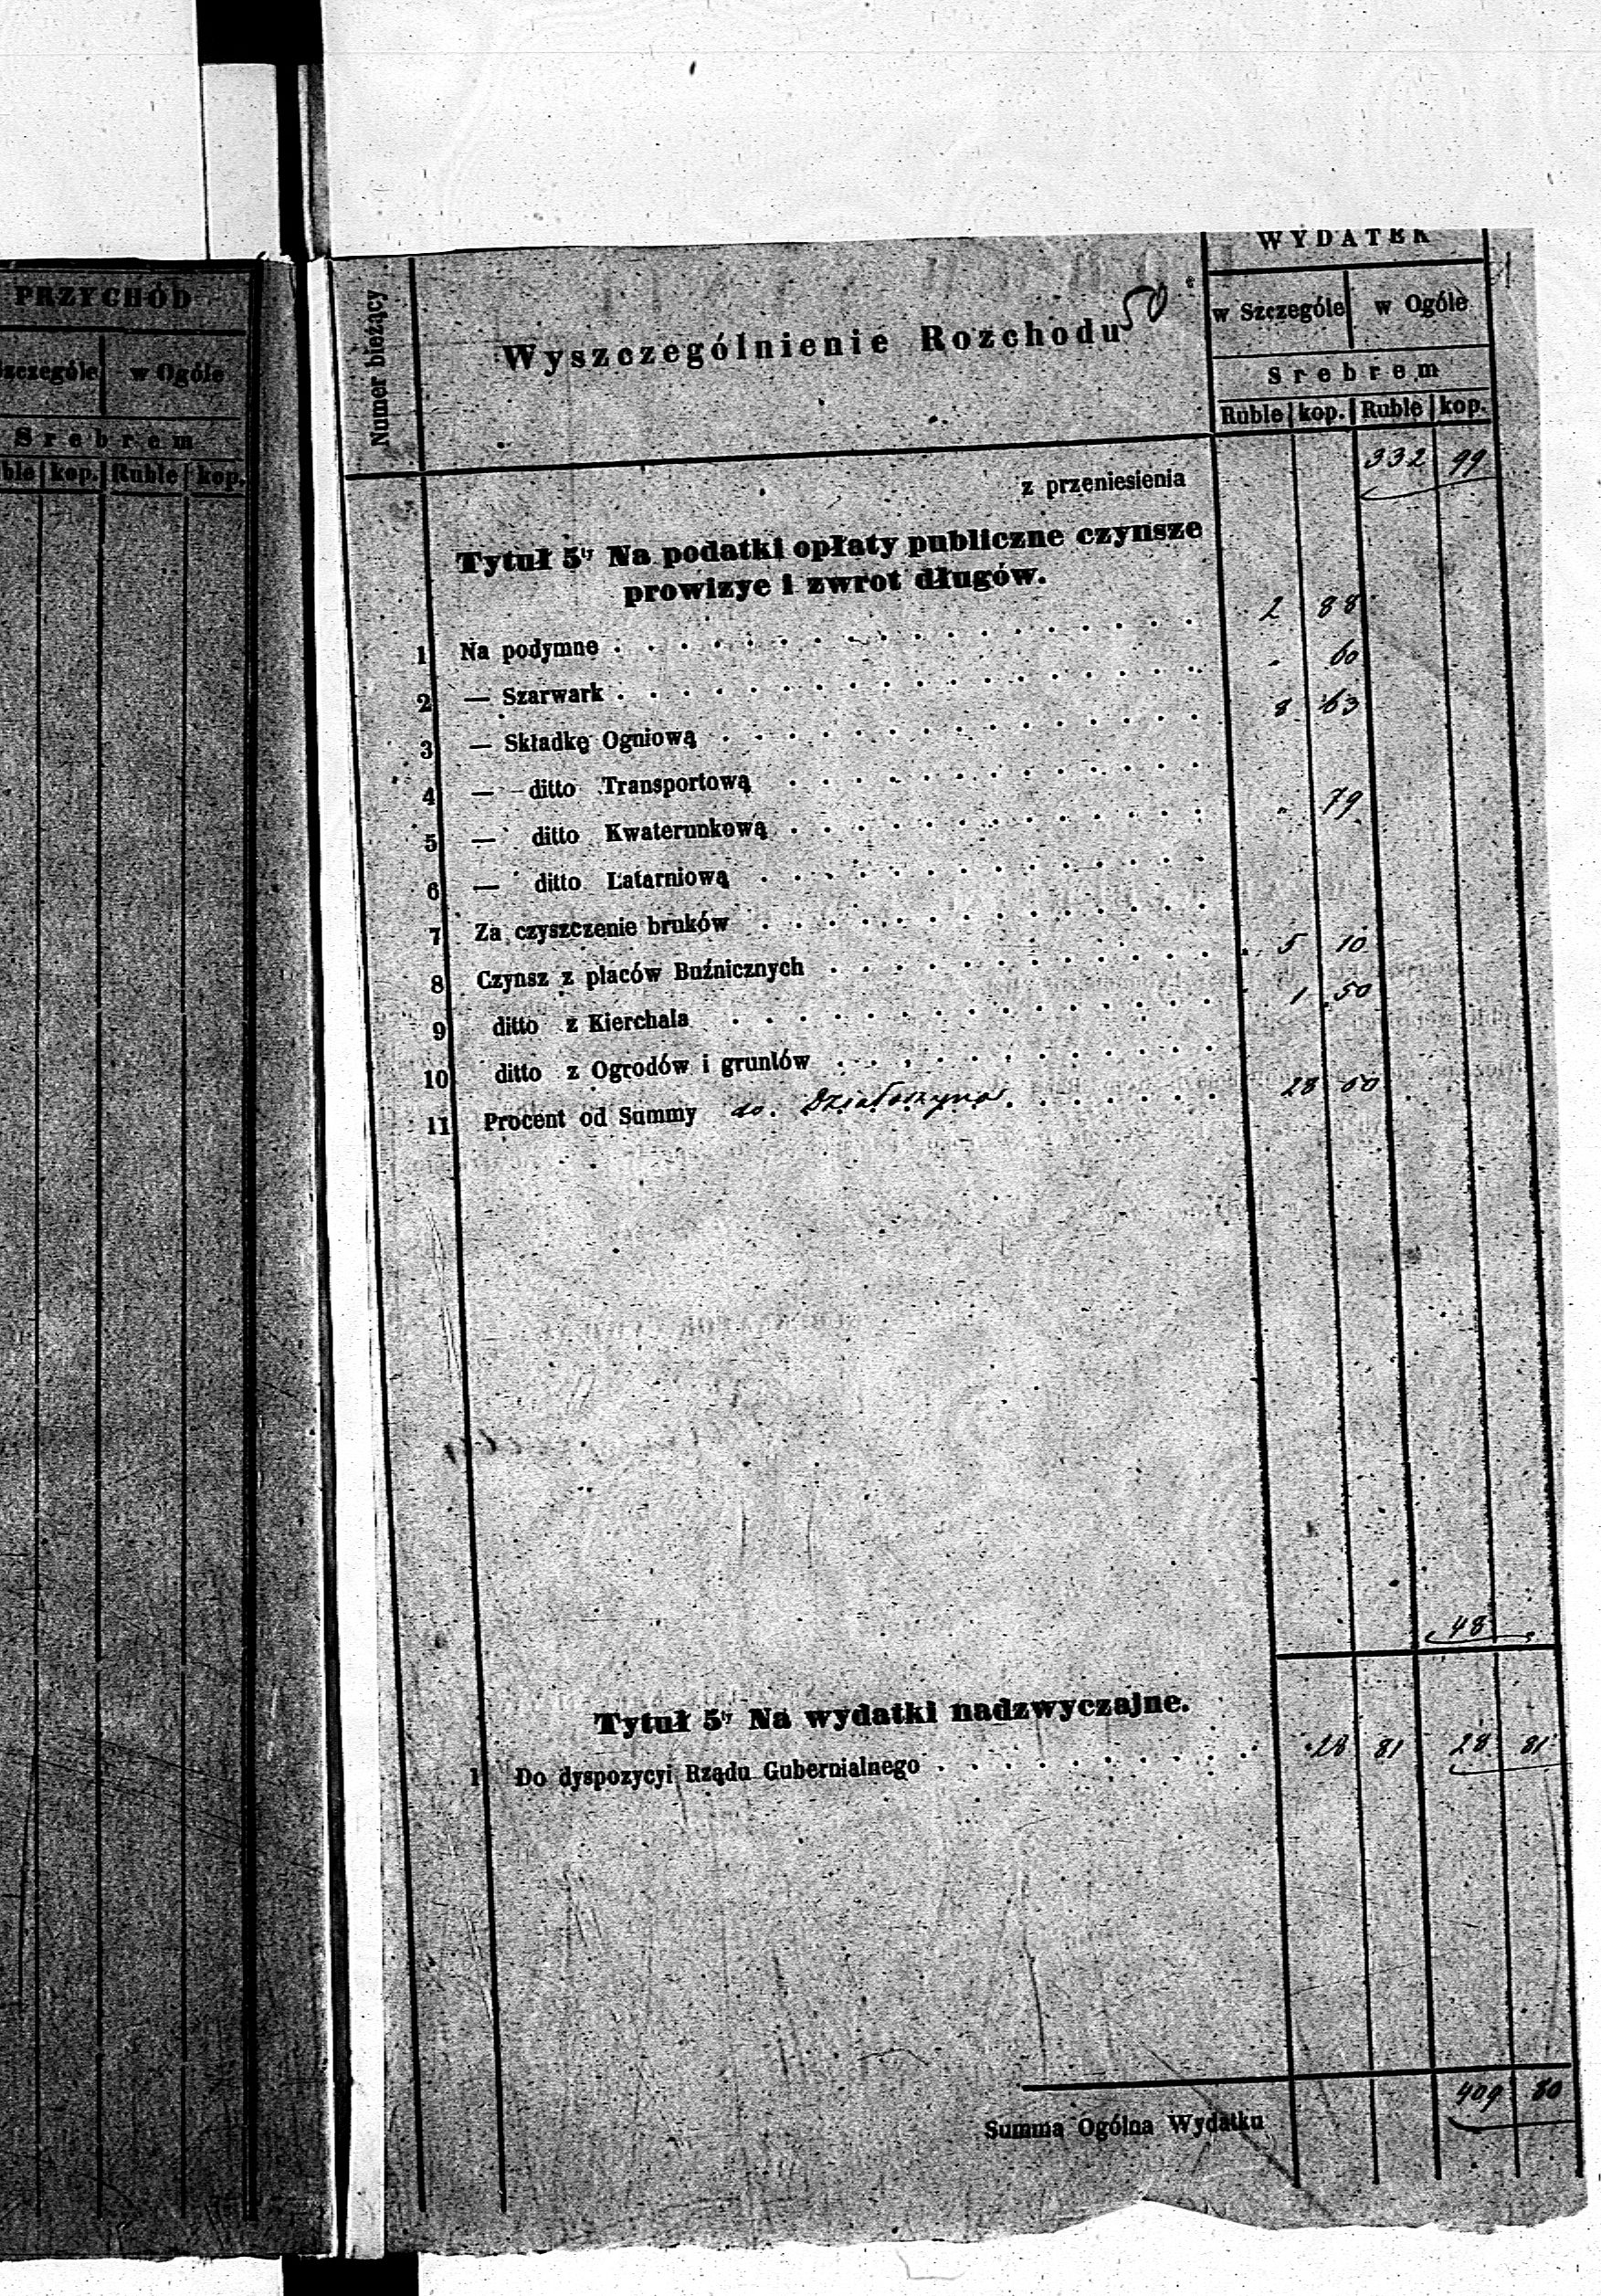 PRZYCHÓD
w Ogóle
Srebrem
kop. Ruble kop.
50
WYDATEK
Numer bieżący
Wyszczególnienie Rozchodu
w Szczególe w Ogóle
Srebrem
Ruble kop. Ruble kop.
z przeniesienia 332 99
Tytuł 5ty Na podatki opłaty publiczne czynsze
prowizye i zwrot długów.
1 Na podymne . . . 2 88
2 — Szarwark . . . - 60
3 — Składkę Ogniową . . . 8 63
4 — ditto Transportową . . .
5 — ditto Kwaterunkową . . . " 79
6 — ditto Latarniową . . .
7 Za czyszczenie bruków . . .
8 Czynsz z placów Buźnicznych . . . 5 10
9 ditto z Kierchala . . . 1 50
10 ditto z Ogrodów i gruntów . . .
11 Procent od Summy do Działoszyna . . . 28 50
48
Tytuł 5ty Na wydatki nadzwyczajne.
1 Do dyspozycyi Rządu Gubernialnego . . . 28 81 28 81
Summa Ogólna Wydatku 409 80